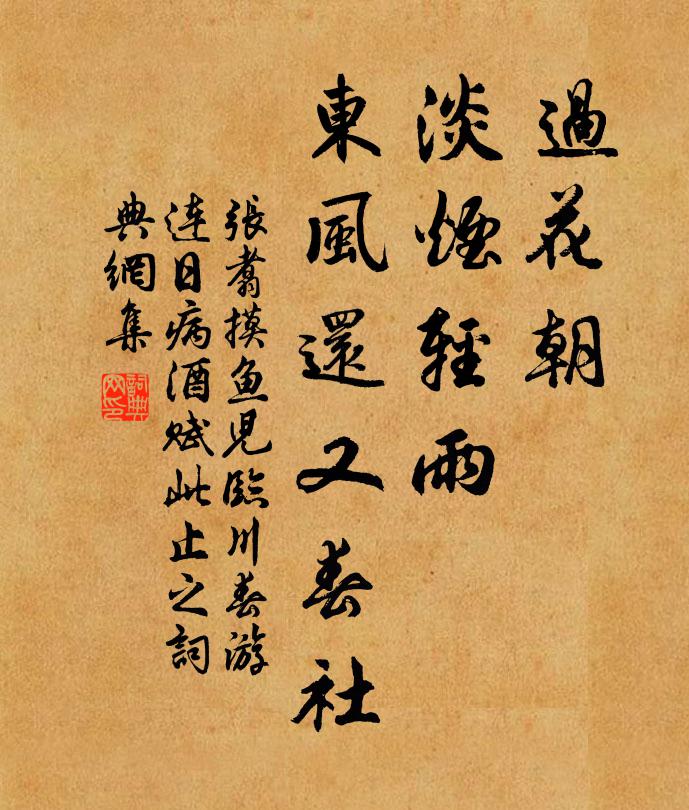 過花朝
淡煙輕雨
東風還又春社
張翥摸魚兒臨川春游
連日病酒賦此止之詞
典網集
詞典
网印